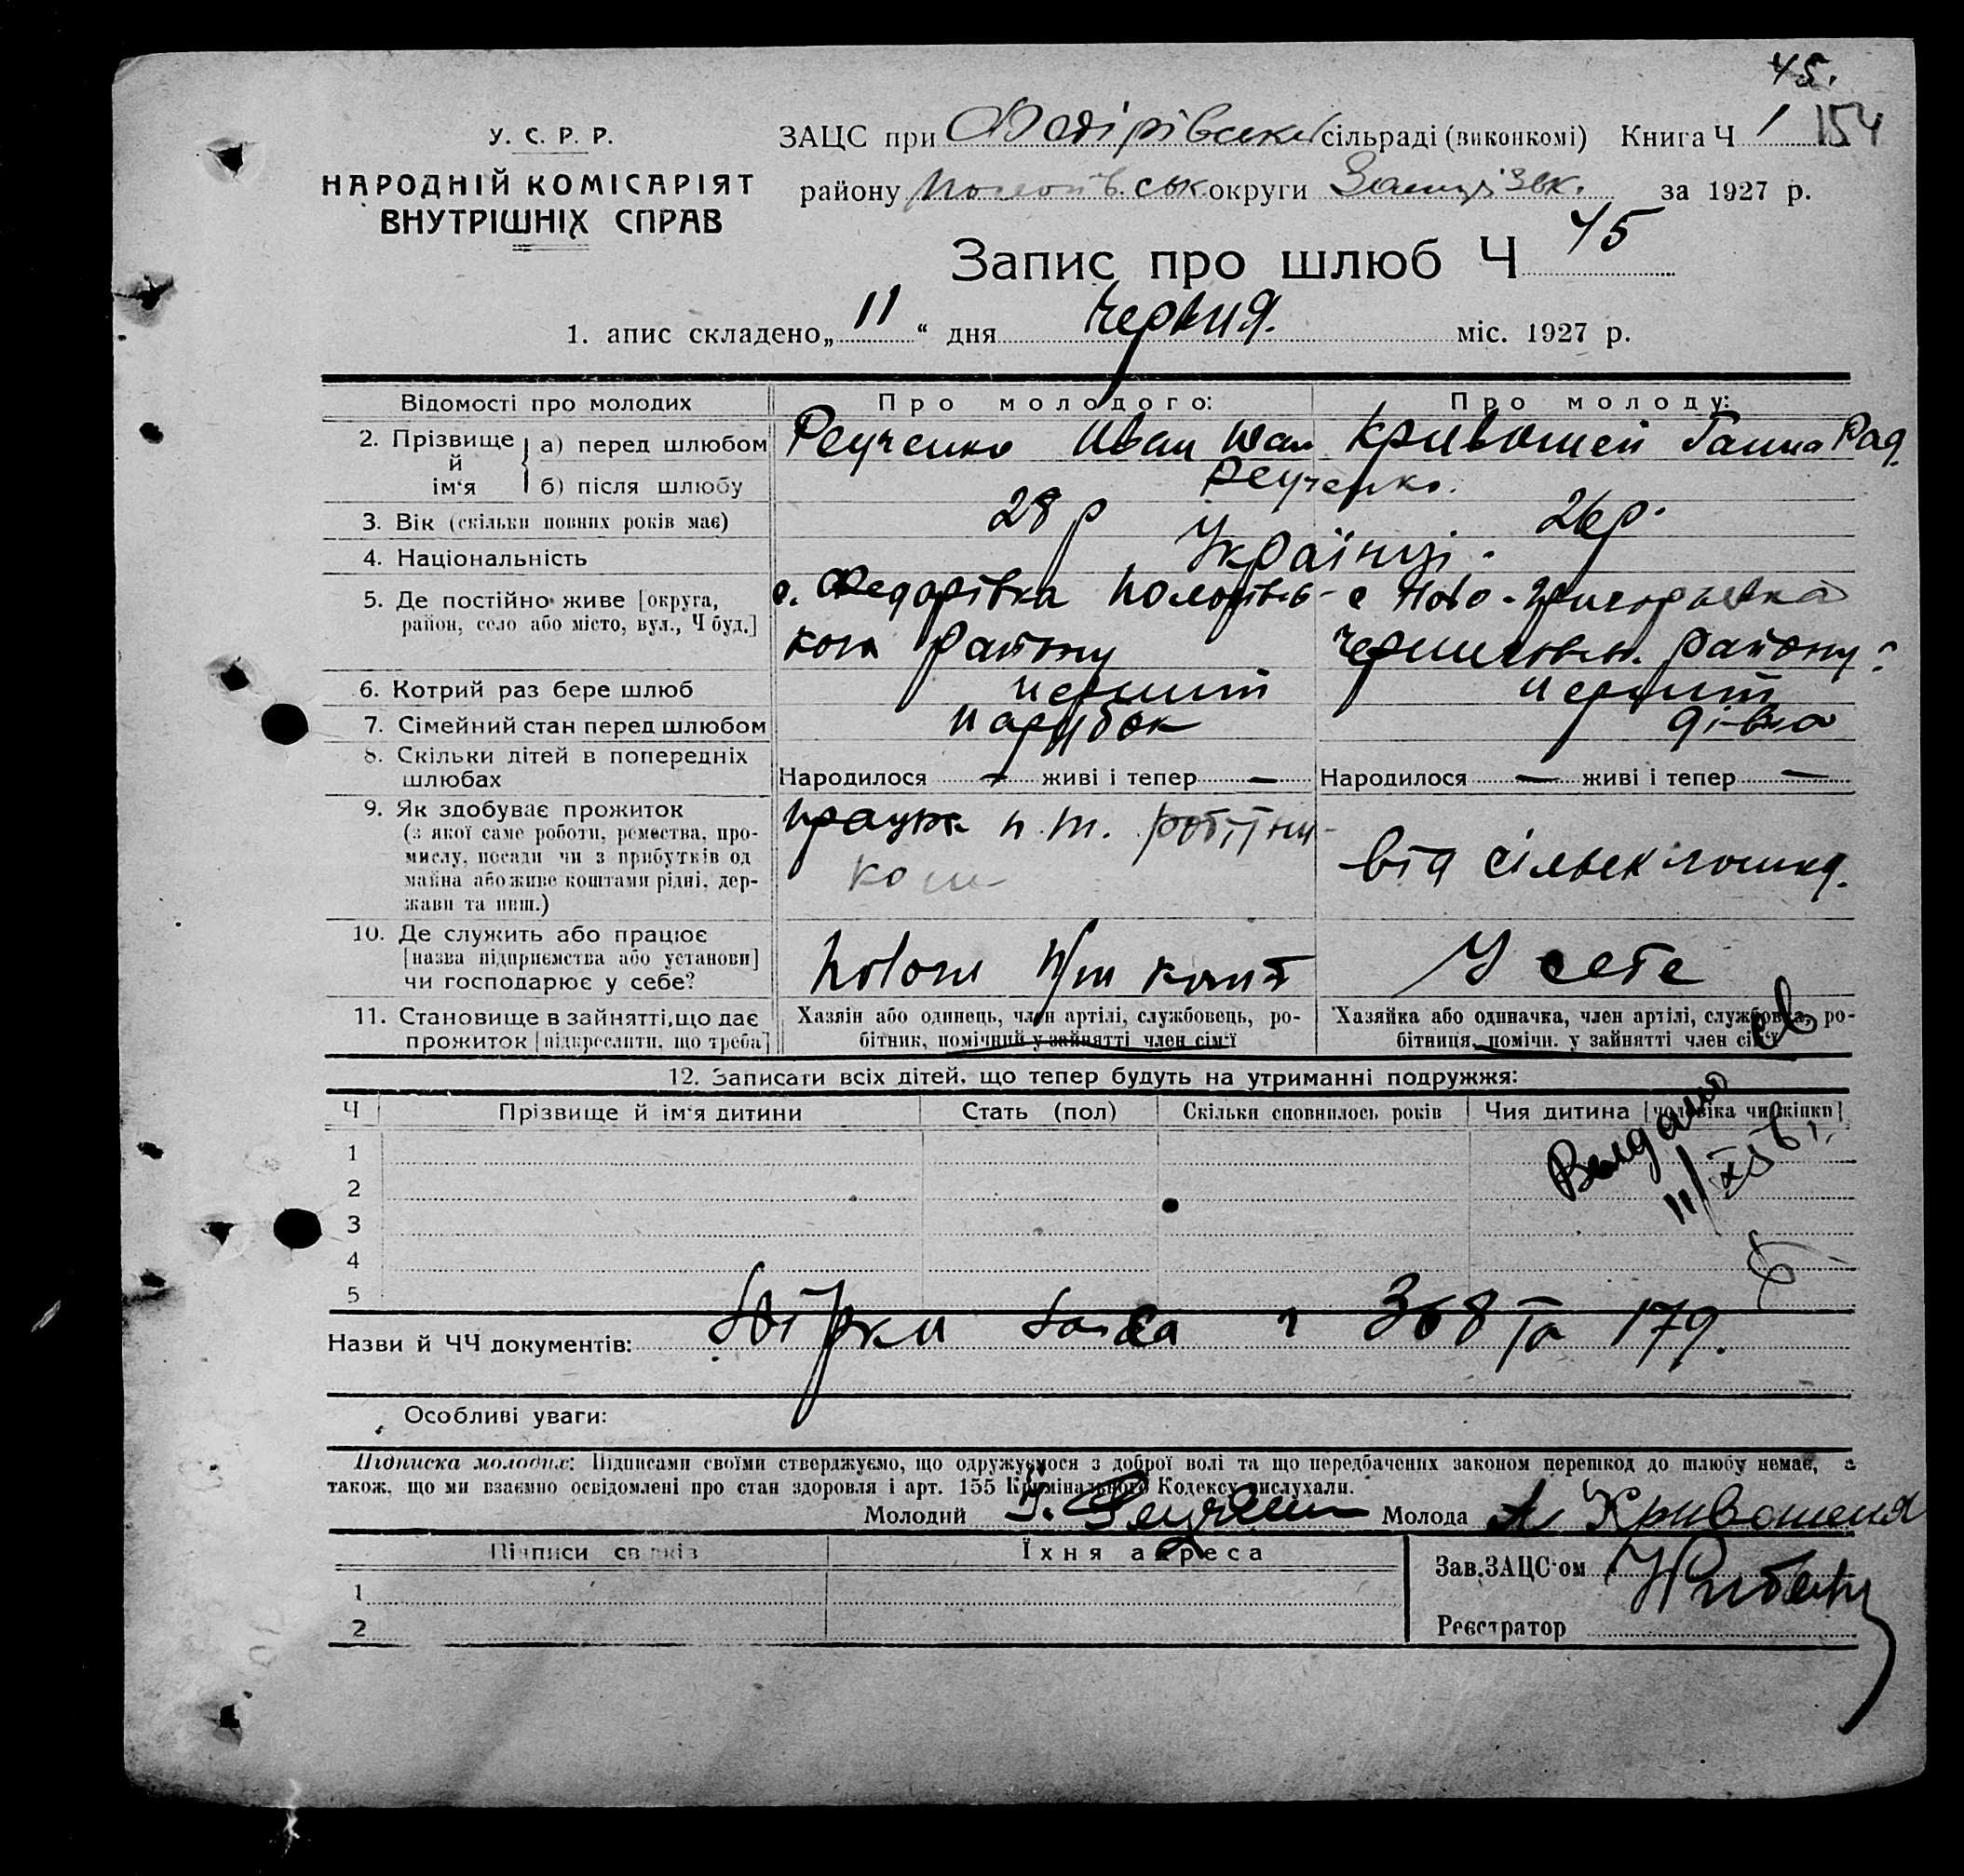 45.
У. С. Р. Р.
НАРОДНІЙ КОМІСАРІЯТ
ВНУТРІШНІХ СПРАВ
ЗАЦС при сільраді (виконкомі) Книга Ч 1 154
району округи за 1927 р.
Запис про шлюб Ч 45
1. апис складено „ 11 “ дня червня. міс. 1927 р.
Відомості про молодих
Про молодого:
Про молоду:
2. Прізвище й ім‘я
а) перед шлюбом
Реученко Иван Кривошей Ганна Рад.
б) після шлюбу
Реученко.
3. Вік (скільки повних років має)
28 р 26 р.
4. Національність
Українці.
5. Де постійно живе [округа,
район, село або місто, вул., Ч буд.]
с. Федорівка пологівсь-
кого району
с Ново-Григорьевка
району
6. Котрий раз бере шлюб
перший перший
7. Сімейний стан перед шлюбом
парубок дівка
8. Скільки дітей в попередніх
шлюбах
Народилося — живі і тепер — Народилося — живі і тепер —
9. Як здобуває прожиток
(з якої саме роботи, ремества, про-
мислу, посади чи з прибутків од
майна або живе коштами рідні, дер-
жави та инш.)
працює п. т. робітни-
ком
від сільськ господ.
10. Де служить або працює
[назва підприємства або установи]
чи господарює у себе?
У себе
11. Становище в зайнятті, що дає
прожиток [підкреслити, що треба]
Хазяїн або одинець, член артілі, службовець, ро-
бітник, помічний у зайнятті член сім‘ї
Хазяйка або одиначка, член артілі, службовка, ро-
бітниця, помічн. у зайнятті член сім‘ї
12. Записати всіх дітей, що тепер будуть на утриманні подружжя:
Ч Прізвище й ім‘я дитини Стать (пол) Скільки сповнилось років Чия дитина [чоловіка чи жінки]
1
2
3
4
5
Назви й ЧЧ документів: 368 та 179.
Особливі уваги:
Підписка молодих: Підписами своїми стверджуємо, що одружуємося з доброї волі та що передбачених законом перешкод до шлюбу немає, а
також, що ми взаємно освідомлені про стан здоровля і арт. 155 Кримінального Кодексу вислухали.
Молодий Молода А Кривошея
Підписи свідків Їхня адреса
Зав. ЗАЦС‘ом
1
Реєстратор
2